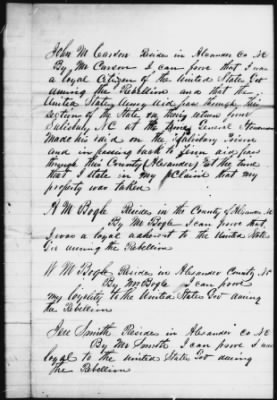 John M Carson Resides in Alexander Co NC
By Mr Carson I can prove that I was
a loyal Citizen of the United States Gov
during the Rebellion and that the
United States Army did pass through this
section of the State on their return from
Salisbury NC at the time General Stoneman
made his raid on the Salisbury Prison
and in passing back to did pass
through this County (Alexander) at the time
that I state in my claim that my
property was taken
A M Bogle Resides in the County of Alexander NC
By Mr Bogle I can prove that
I was a loyal adherent to the United States
Gov during the Rebellion
W M Bogle Resides in Alexander County NC
By Mr Bogle I can prove
my loyalty to the United States Gov during
the Rebellion
Smith Resides in Alexander Co NC
By Mr Smith I can prove I was
loyal to the United States Gov during
the Rebellion